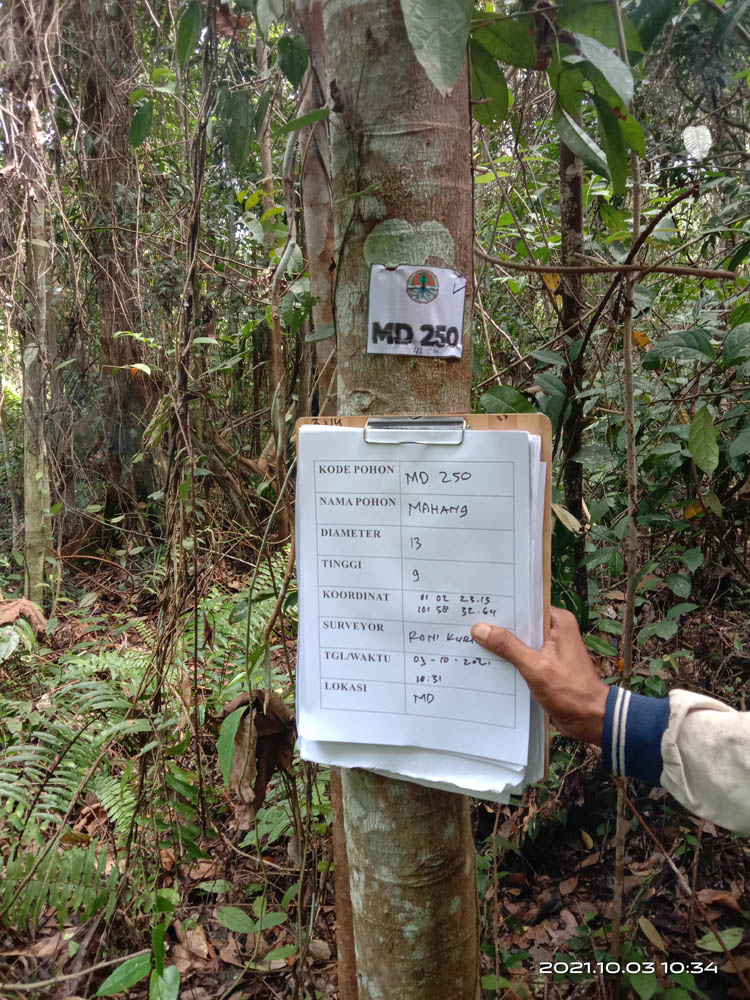 MD 250
42 CM
KODE POHON MD 250
NAMA POHON MAHANG
DIAMETER 13
TINGGI 9
KOORDINAT 01 02 23.15
101 58 32.64
SURVEYOR RONI
TGL/WAKTU 03-10-2021
10.31
LOKASI MD
2021.10.03 10:34